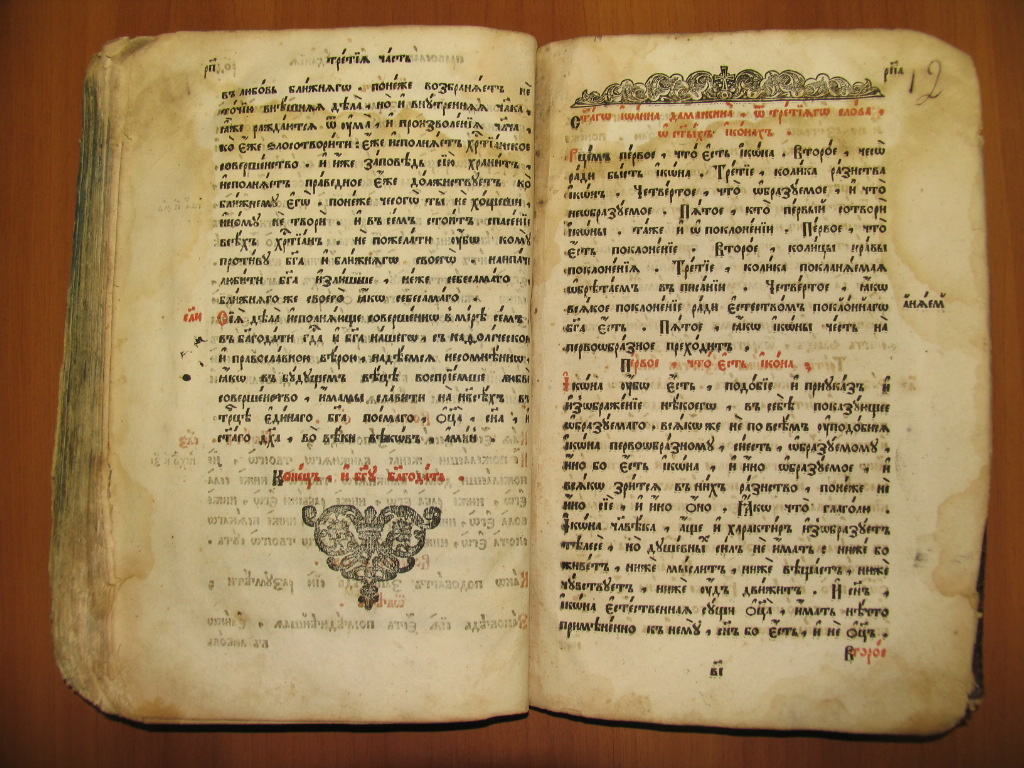 рп҃
третїѧ часть
въ любовь ближнѧгѡ. понеже возбранѧетъ не
точїю внѣшнѧѧ дѣла, но и внутреннѧѧ
ꙗже раждаютсѧ ѿ ума, и произволенїѧ
ко еже ѕлотворити: еже исполнѧетъ хрⷭ҇тїанское
совершенство. и иже заповѣдь сїю хранитъ,
исполнѧетъ праведное еже долженствуетъ ко
ближнему егѡ. понеже чесогѡ ты не хощеши,
иному не твори. и въ семъ стоитъ спасенїе
всѣхъ хрⷭ҇тїанъ. не пожелати ѹбѡ кому
противу бг҃а и ближнѧгѡ своегѡ. наипаче
любити бг҃а излишше, неже себесамаго.
ближнѧго же своего ꙗкѡ себесамаго.
Сїѧ дѣла исполнѧюще совершеннѡ в мирѣ семъ,
въ благодати гдⷭ҇а и бг҃а нашегѡ, съ каѳолическою
и православною вѣрою, надѣемсѧ несомнѣннѡ,
ꙗкѡ въ будущемъ вѣцѣ воспрїемше любве
совершенство, имамы славити на нбсѣхъ въ
трⷪ҇цѣ единаго бг҃а поемаго, ѻц҃а, сн҃а, и
ст҃аго дх҃а, во вѣки вѣковъ, аминь.
Конецъ, и бг҃у благодать.
рп҃а
12
Ст҃агѡ іѡанна дамаскина, ѿ третїѧгѡ слова,
ѡ ст҃ыхъ іконахъ.
Рцемъ первое, что есть ікѡна. Второе, чесѡ
ради бысть ікѡна. Третїе, колика разнства
ікѡнъ. Четвертое, что ѡбразуемое, и что
неѡбразуемое. Пѧтое, кто первый сотвори
ікѡны. таже и ѡ поклоненїи. Первое, что
есть поклоненїе. Второе, колицы нравы
поклоненїѧ. Третїе, колика покланѧемаѧ
ѡбрѣтаемъ въ писанїи. Четвертое, ꙗкѡ
всѧкое поклоненїе ради естествомъ поклонѧемагѡ
бг҃а есть. Пѧтое, ꙗкѡ ікѡны честь на
первоѡбразное преходитъ.
Первое, что есть ікона,
Ікѡна ѹбѡ есть, подобїе и приуказъ и
изѡбраженїе нѣкоегѡ, въ себѣ показующее
ѡбразуемаго. всѧкѡ же не по всѣмъ ѹподобисѧ
ікѡна первоѡбразному, сиесть, ѡбразуемому,
ино бо есть ікѡна, и ино ѡбразуемое, и
всѧкѡ зритсѧ въ нихъ разнство, понеже не
ино сїе, и ино ѻно. Ꙗкѡ что глаголю.
Ікѡна чл҃вѣка, аще и характиръ изѡбразуетъ
тѣлесе, но душевныѧ силъ не имать: ниже бо
живетъ, ниже мыслитъ, ниже вѣщаетъ, ниже
чувствуетъ, ниже удъ движитъ. И сн҃ъ,
ікѡна естественнаѧ сущи ѻц҃а, имать нѣчто
примѣненно къ нему, сн҃ъ бо есть, и не ѻц҃ъ.
Второе
в҃і